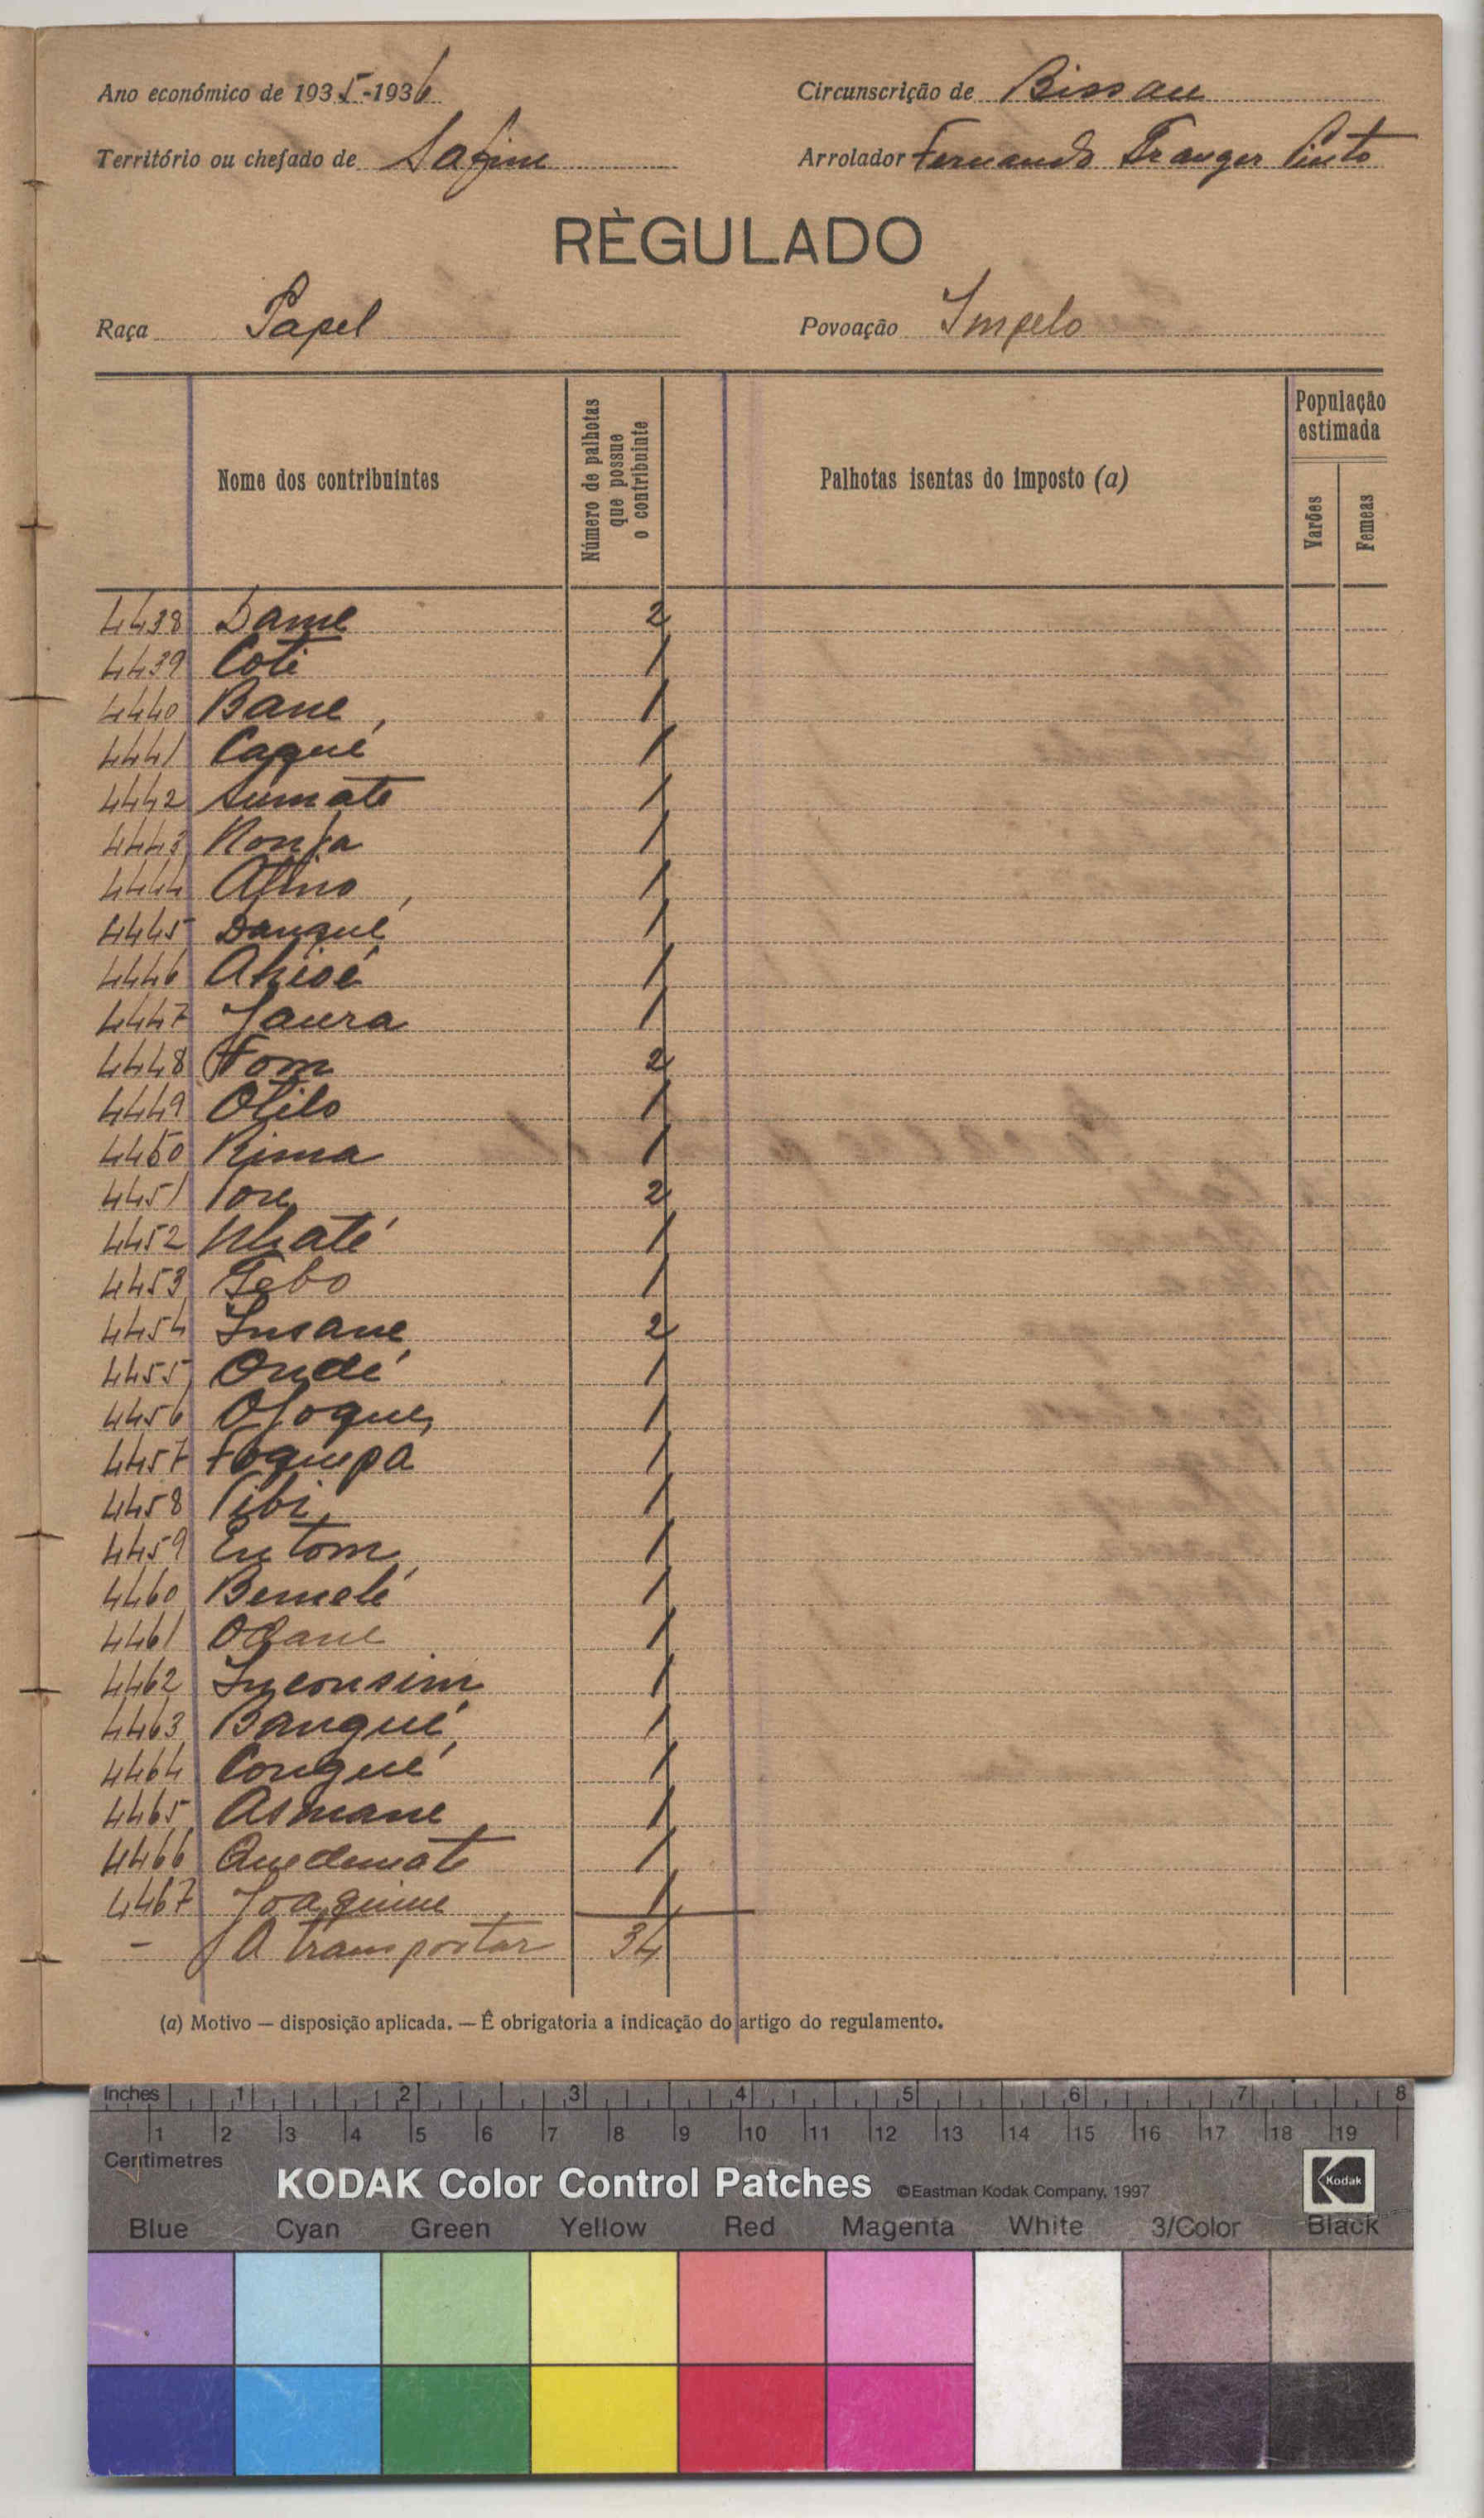 Ano económico de 1935-1936 Circunscrição de Bissau
Território ou chefado de Safim Arrolador Fernando Pinto
RÈGULADO
Raça Papel Povoação Impelo
Nome dos contribuintes
Número de palhotas que possue o contribuinte
Palhotas isentas do imposto (a)
População estimada
Varões Femeas
4438 Dame 2
4439 Coti 1
4440 Bane 1
4441 Caqué 1
4442 Sumate 1
4443 1
4444 1
4445 Danqué 1
4446 1
4447 Jaura 1
4448 Fom 2
4449 Olilo 1
4450 Rima 1
4451 2
4452 Nhaté 1
4453 1
4454 Insane 2
4455 Ondé 1
4456 Ofogue 1
4457 Foquepa 1
4458 1
4459 Entom 1
4460 Bemelé 1
4461 1
4462 Inconsim 1
4463 Bangué 1
4464 Congué 1
4465 Asmane 1
4466 Quedemate 1
4467 Joaquime 1
- A transportar 34
(a) Motivo — disposição aplicada. — Ê obrigatoria a indicação do artigo do regulamento.
Inches 1 2 3 4 5 6 7 8
1 2 3 4 5 6 7 8 9 10 11 12 13 14 15 16 17 18 19
Centimetres
KODAK Color Control Patches ©Eastman Kodak Company, 1997 Kodak
Blue Cyan Green Yellow Red Magenta White 3/Color Black